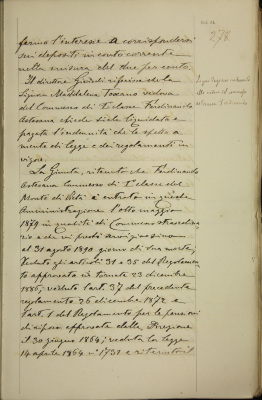 278
fermo l'interesse a corrispondersi
sui depositi in conto corrente
nella misura del due per cento.
Il direttore Giusdi riferisce che la
Signora Maddalena Toscano vedova
del Commesso di 1ª classe Ferdinando
Astesana chiede sia le liquidata e
pagata l'indennità che le spetta a
mente di legge e dei regolamenti in
vigore.
La Giunta, ritenuto che Ferdinando
Astesana Commesso di 1ª classe del
Monte di Pietà è entrato in questa
Amministrazione l'otto maggio
1879 in qualità di Commesso straordina
rio e che in prestò servizio sino
al 31 agosto 1890 giorno di sua morte,
Veduti gli articoli 31 e 35 del Regolamen
to approvato in tornata 23 dicembre
1886; veduto l'art. 37 del precedente
regolamento 26 dicembre 1872 e
l'art. 1 del Regolamento per le pensioni
di riposo approvato dalla Direzione
il 30 giugno 1864; veduta la legge
14 aprile 1864 n° 1731 e ritenuto il